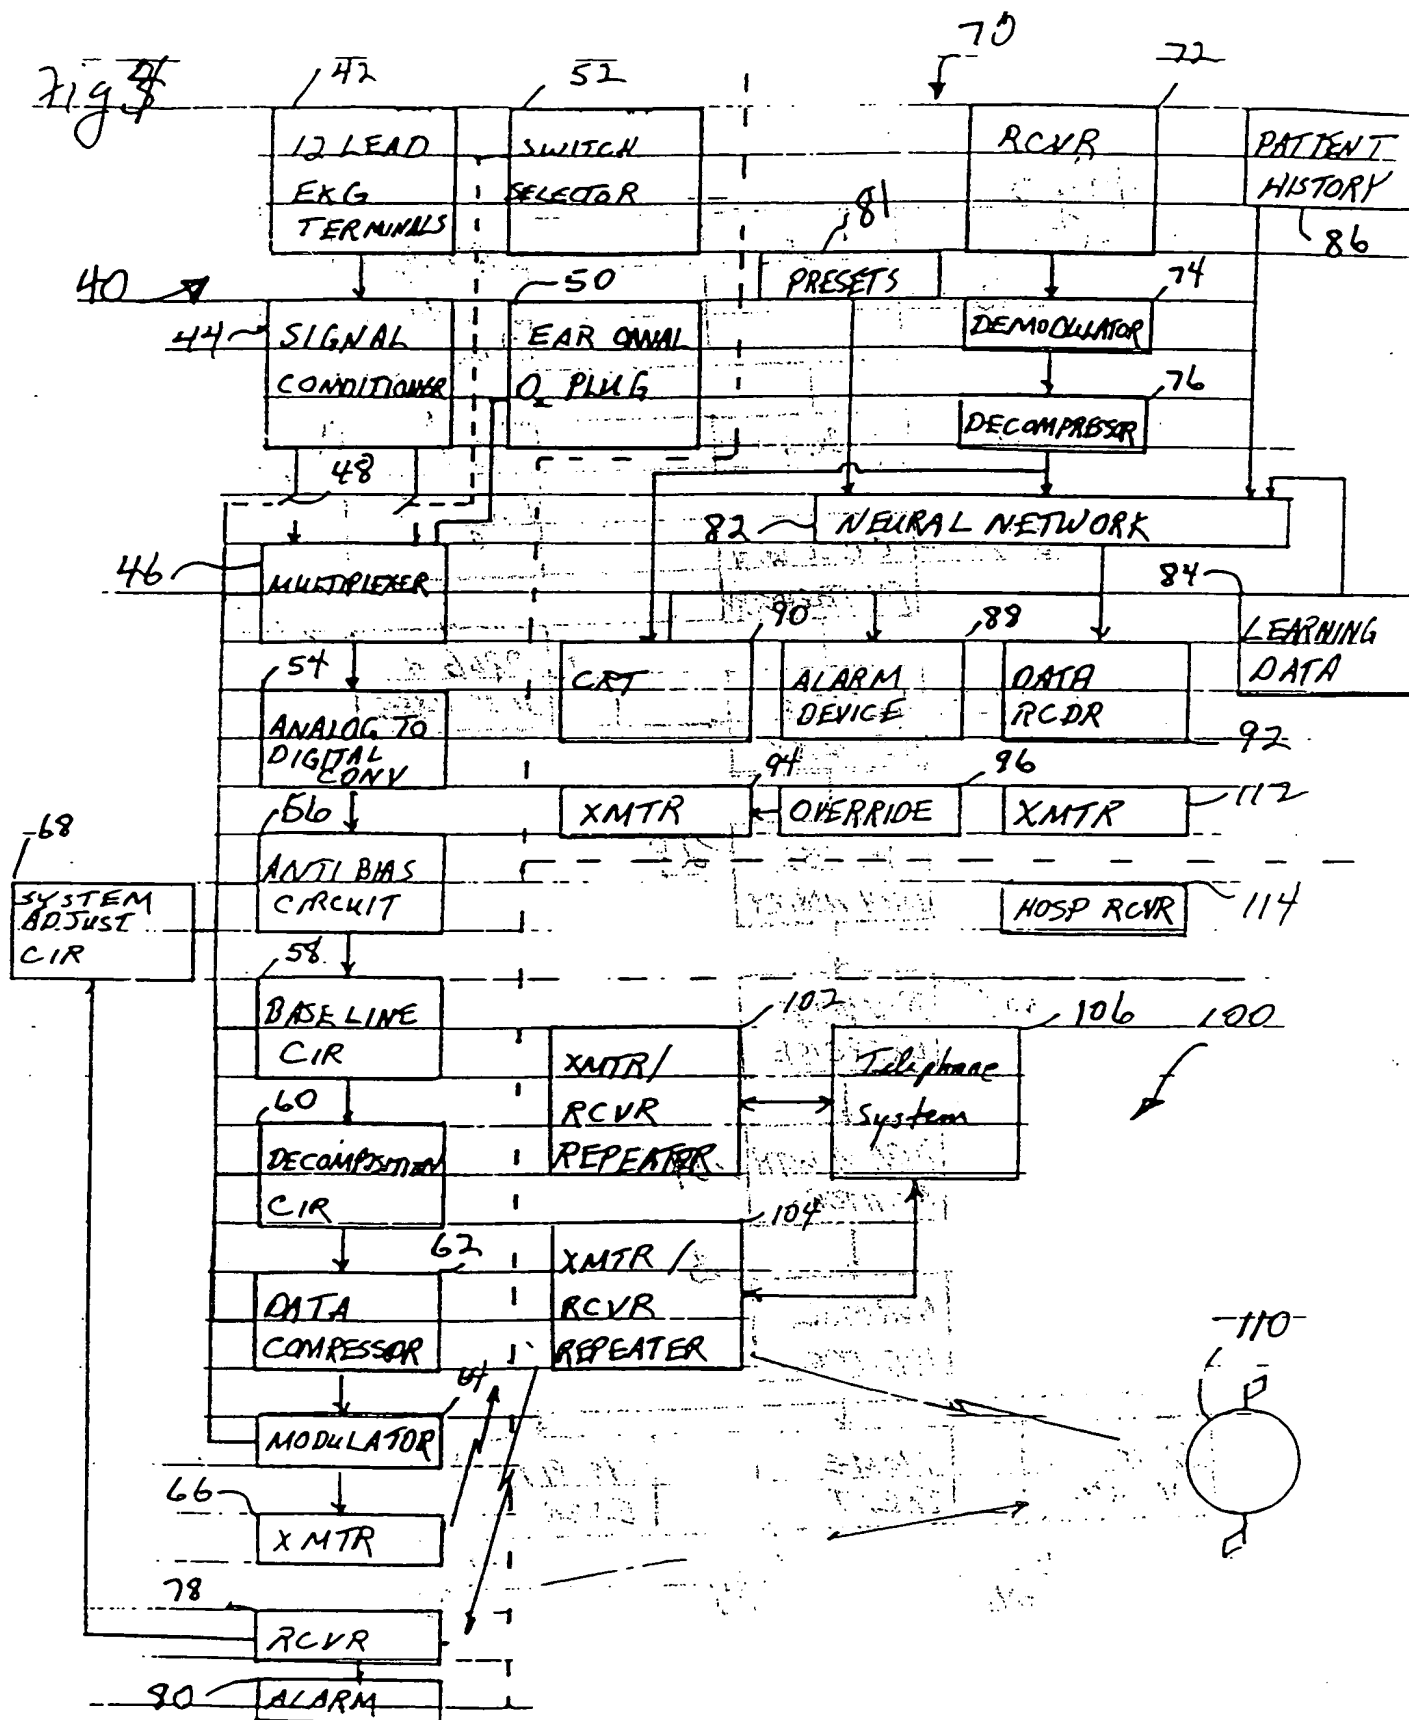 Fig
42
52
70
72
12 LEAD
EKG
TERMINALS
SWITCH
SELECTOR
RCVR
PATIENT
HISTORY
86
81
PRESETS
40
44
SIGNAL
CONDITIONER
50
EAR CANAL
O2 PLUG
74
DEMODULATOR
76
DECOMPRESSOR
48
82
NEURAL NETWORK
46
MULTIPLEXER
84
LEARNING
DATA
54
ANALOG TO
DIGITAL
CONV
90
CRT
88
ALARM
DEVICE
DATA
RCDR
92
94
XMTR
96
OVERRIDE
XMTR
112
56
ANTI BIAS
CIRCUIT
68
SYSTEM
ADJUST
CIR
HOSP RCVR
114
58
BASE LINE
CIR
102
XMTR/
RCVR
REPEATER
106
Telephone
System
100
60
DECOMPOSITION
CIR
104
XMTR/
RCVR
REPEATER
62
DATA
COMPESSOR
110
64
MODULATOR
66
XMTR
78
RCVR
80
ALARM